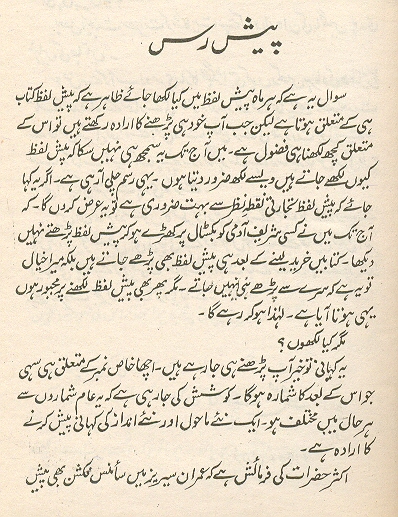 پیش رس
سوال یہ ہے کہ ہر ماہ پیش لفظ میں کیا لکھا جائے ظاہر ہے کہ پیش لفظ کتاب
ہی کے متعلق ہوتا ہے لیکن جب آپ خود ہی پڑھنے کا ارادہ رکھتے ہیں تو اس کے
متعلق کچھ لکھنا ہی فضول ہے۔ میں آج تک یہ سمجھ ہی نہیں سکا کہ پیش لفظ
کیوں لکھے جاتے ہیں ویسے لکھ ضرور دیتا ہوں۔ یہی رسم چلی آ رہی ہے۔ اگر یہ کہا
جائے کہ پیش لفظ تجارتی نقطۂ نظر سے بہت ضروری ہے تو یہ عرض کروں گا۔ کہ
آج تک میں نے کسی شریف آدمی کو بکسٹال پر کھڑے ہو کر پیش لفظ پڑھتے نہیں
دیکھا۔ کتابیں خرید لینے کے بعد ہی پیش لفظ بھی پڑھے جاتے ہیں بلکہ میرا خیال
تو یہ ہے کہ سرے سے پڑھے ہی نہیں جاتے۔ مگر پھر بھی پیش لفظ لکھنے پر مجبور ہوں
یہی ہوتا آیا ہے۔ لہٰذا ہو کر رہے گا۔
مگر کیا لکھوں؟
یہ کہانی تو خیر آپ پڑھنے ہی جا رہے ہیں۔ اچھا خاص نمبر کے متعلق ہی سہی
جو اس کے بعد کا شمارہ ہوگا۔ کوشش کی جا رہی ہے کہ یہ عام شماروں سے
ہر حال میں مختلف ہو۔ ایک نئے ماحول اور نئے انداز کی کہانی پیش کرنے
کا ارادہ ہے۔
اکثر حضرات کی فرمائش ہے کہ عمران سیریز میں سائنس فکشن بھی پیش